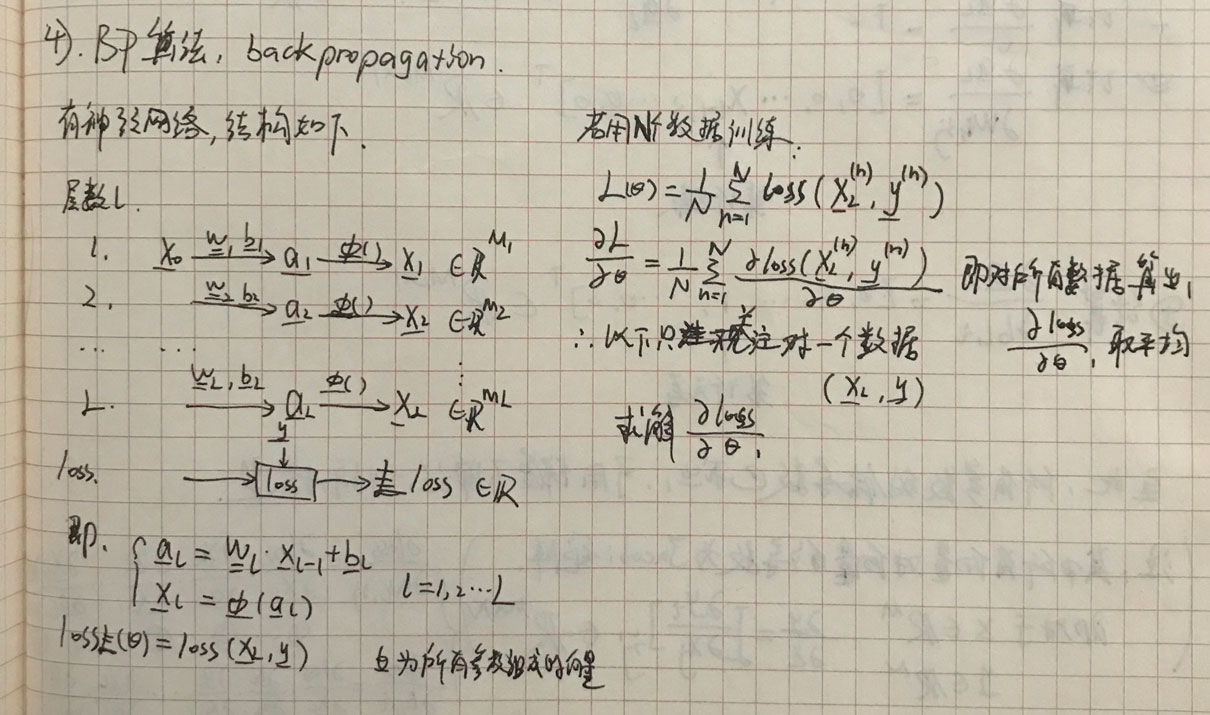 4). BP算法, backpropagation.
有神经网络, 结构如下.
层数l.
1. x₀ —w₁, b₁→ a₁ —Φ()→ x₁ ∈ℝ^M₁
2. —w₂ b₂→ a₂ —Φ()→ x₂ ∈ℝ^M₂
... ...
L. —w_L, b_L→ a_L —Φ()→ x_L ∈ℝ^M_L
y
loss. → loss → loss ∈ℝ
即. { a_l = w_l · x_{l-1} + b_l
x_l = Φ(a_l) l=1,2…L
loss(θ) = loss(x_L, y) θ为所有参数组成的向量
若用N个数据训练:
L(θ) = 1/N Σ_{n=1}^N loss(x_L^(n), y^(n))
∂L/∂θ = 1/N Σ_{n=1}^N ∂loss(x_L^(n), y^(n))/∂θ 即对所有数据算出,
∂loss/∂θ, 取平均
∴ 以下只关注对一个数据
(x_L, y)
求解 ∂loss/∂θ.